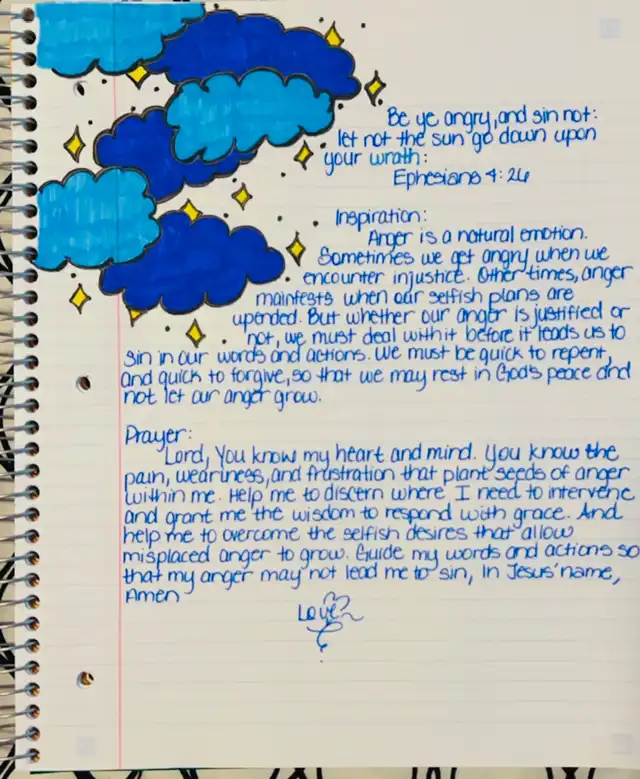 Be ye angry, and sin not:
let not the sun go down upon
your wrath:
Ephesians 4:26
Inspiration:
Anger is a natural emotion.
Sometimes we get angry when we
encounter injustice. Other times, anger
mainfests when our selfish plans are
upended. But whether our anger is justified or
not, we must deal with it before it leads us to
sin in our words and actions. We must be quick to repent,
and quick to forgive, so that we may rest in God's peace and
not let our anger grow.
Prayer:
Lord, You know my heart and mind. You know the
pain, weariness, and frustration that plant seeds of anger
within me. Help me to discern where I need to intervene
and grant me the wisdom to respond with grace. And
help me to overcome the selfish desires that allow
misplaced anger to grow. Guide my words and actions so
that my anger may not lead me to sin, In Jesus' name,
Amen
Love